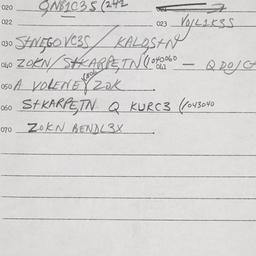 020 QNB1C35 (242
022 023 VOJL1K3S
030 S+NEGOVC3S / KALQS+N
040 ZOKN / S+KARPE,TN (040060 061 — Q DOJG
050 A VOLENE ZOK
060 S+KARPE,TN Q KURC3 (043040
070 ZOKN BENDL3X